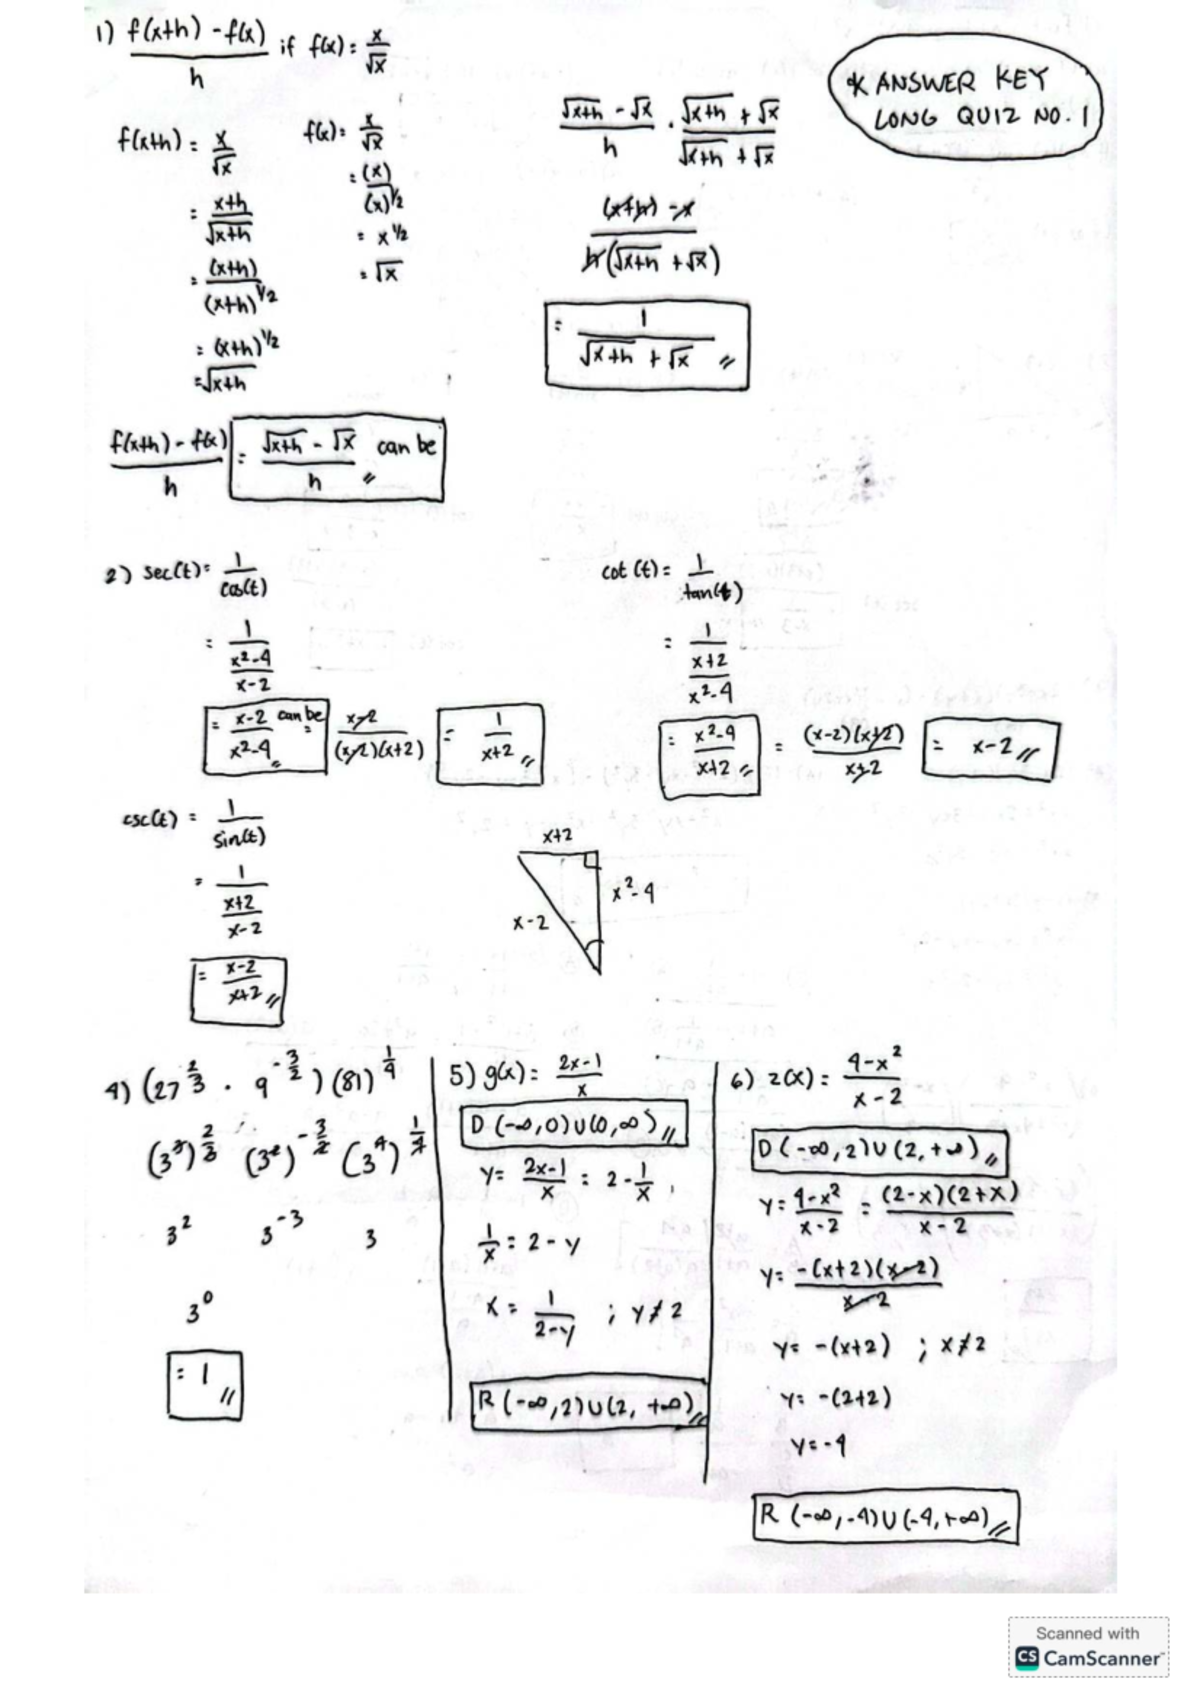 * ANSWER KEY
LONG QUIZ NO. 1
1) f(x+h) - f(x) / h if f(x) = x/√x
f(x+h) = x/√x
= x+h / √x+h
= (x+h) / (x+h)^1/2
= (x+h)^1/2
= √x+h
f(x) = x/√x
= (x) / (x)^1/2
= x^1/2
= √x
√x+h - √x / h · √x+h + √x / √x+h + √x
(x+h) - x / h(√x+h + √x)
= 1 / √x+h + √x //
f(x+h) - f(x) / h = √x+h - √x / h // can be
2) sec(t) = 1 / cos(t)
= 1 / x²-4 / x-2
= x-2 / x²-4 // can be = x-2 / (x-2)(x+2) = 1 / x+2 //
cot(t) = 1 / tan(t)
= 1 / x+2 / x²-4
= x²-4 / x+2 // = (x-2)(x+2) / x+2 = x-2 //
csc(t) = 1 / sin(t)
= 1 / x+2 / x-2
= x-2 / x+2 //
x+2
x²-4
x-2
4) (27^2/3 · 9^-3/2)(81)^1/4
(3³)^2/3 (3²)^-3/2 (3⁴)^1/4
3² 3^-3 3
3⁰
= 1 //
5) g(x) = 2x-1 / x
D (-∞,0)∪(0,∞) //
y = 2x-1 / x = 2 - 1/x ,
1/x = 2 - y
x = 1 / 2-y ; y≠2
R (-∞,2)∪(2, +∞) //
6) z(x) = 4-x² / x-2
D (-∞,2)∪(2,+∞) //
y = 4-x² / x-2 = (2-x)(2+x) / x-2
y = -(x+2)(x-2) / x-2
y = -(x+2) ; x≠2
y = -(2+2)
y = -4
R (-∞,-4)∪(-4,+∞) //
Scanned with
CS CamScanner